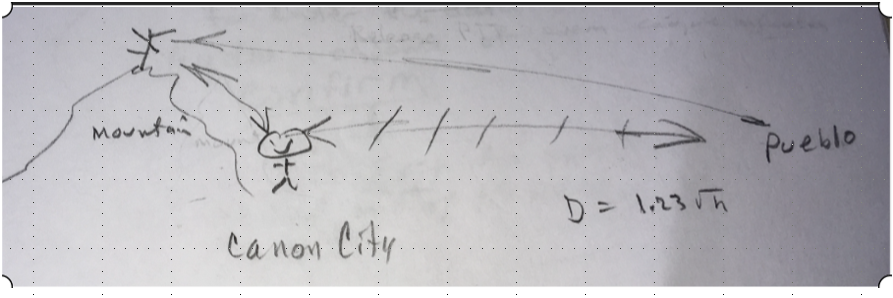 Mountain
Pueblo
D = 1.23 √h
Canon City